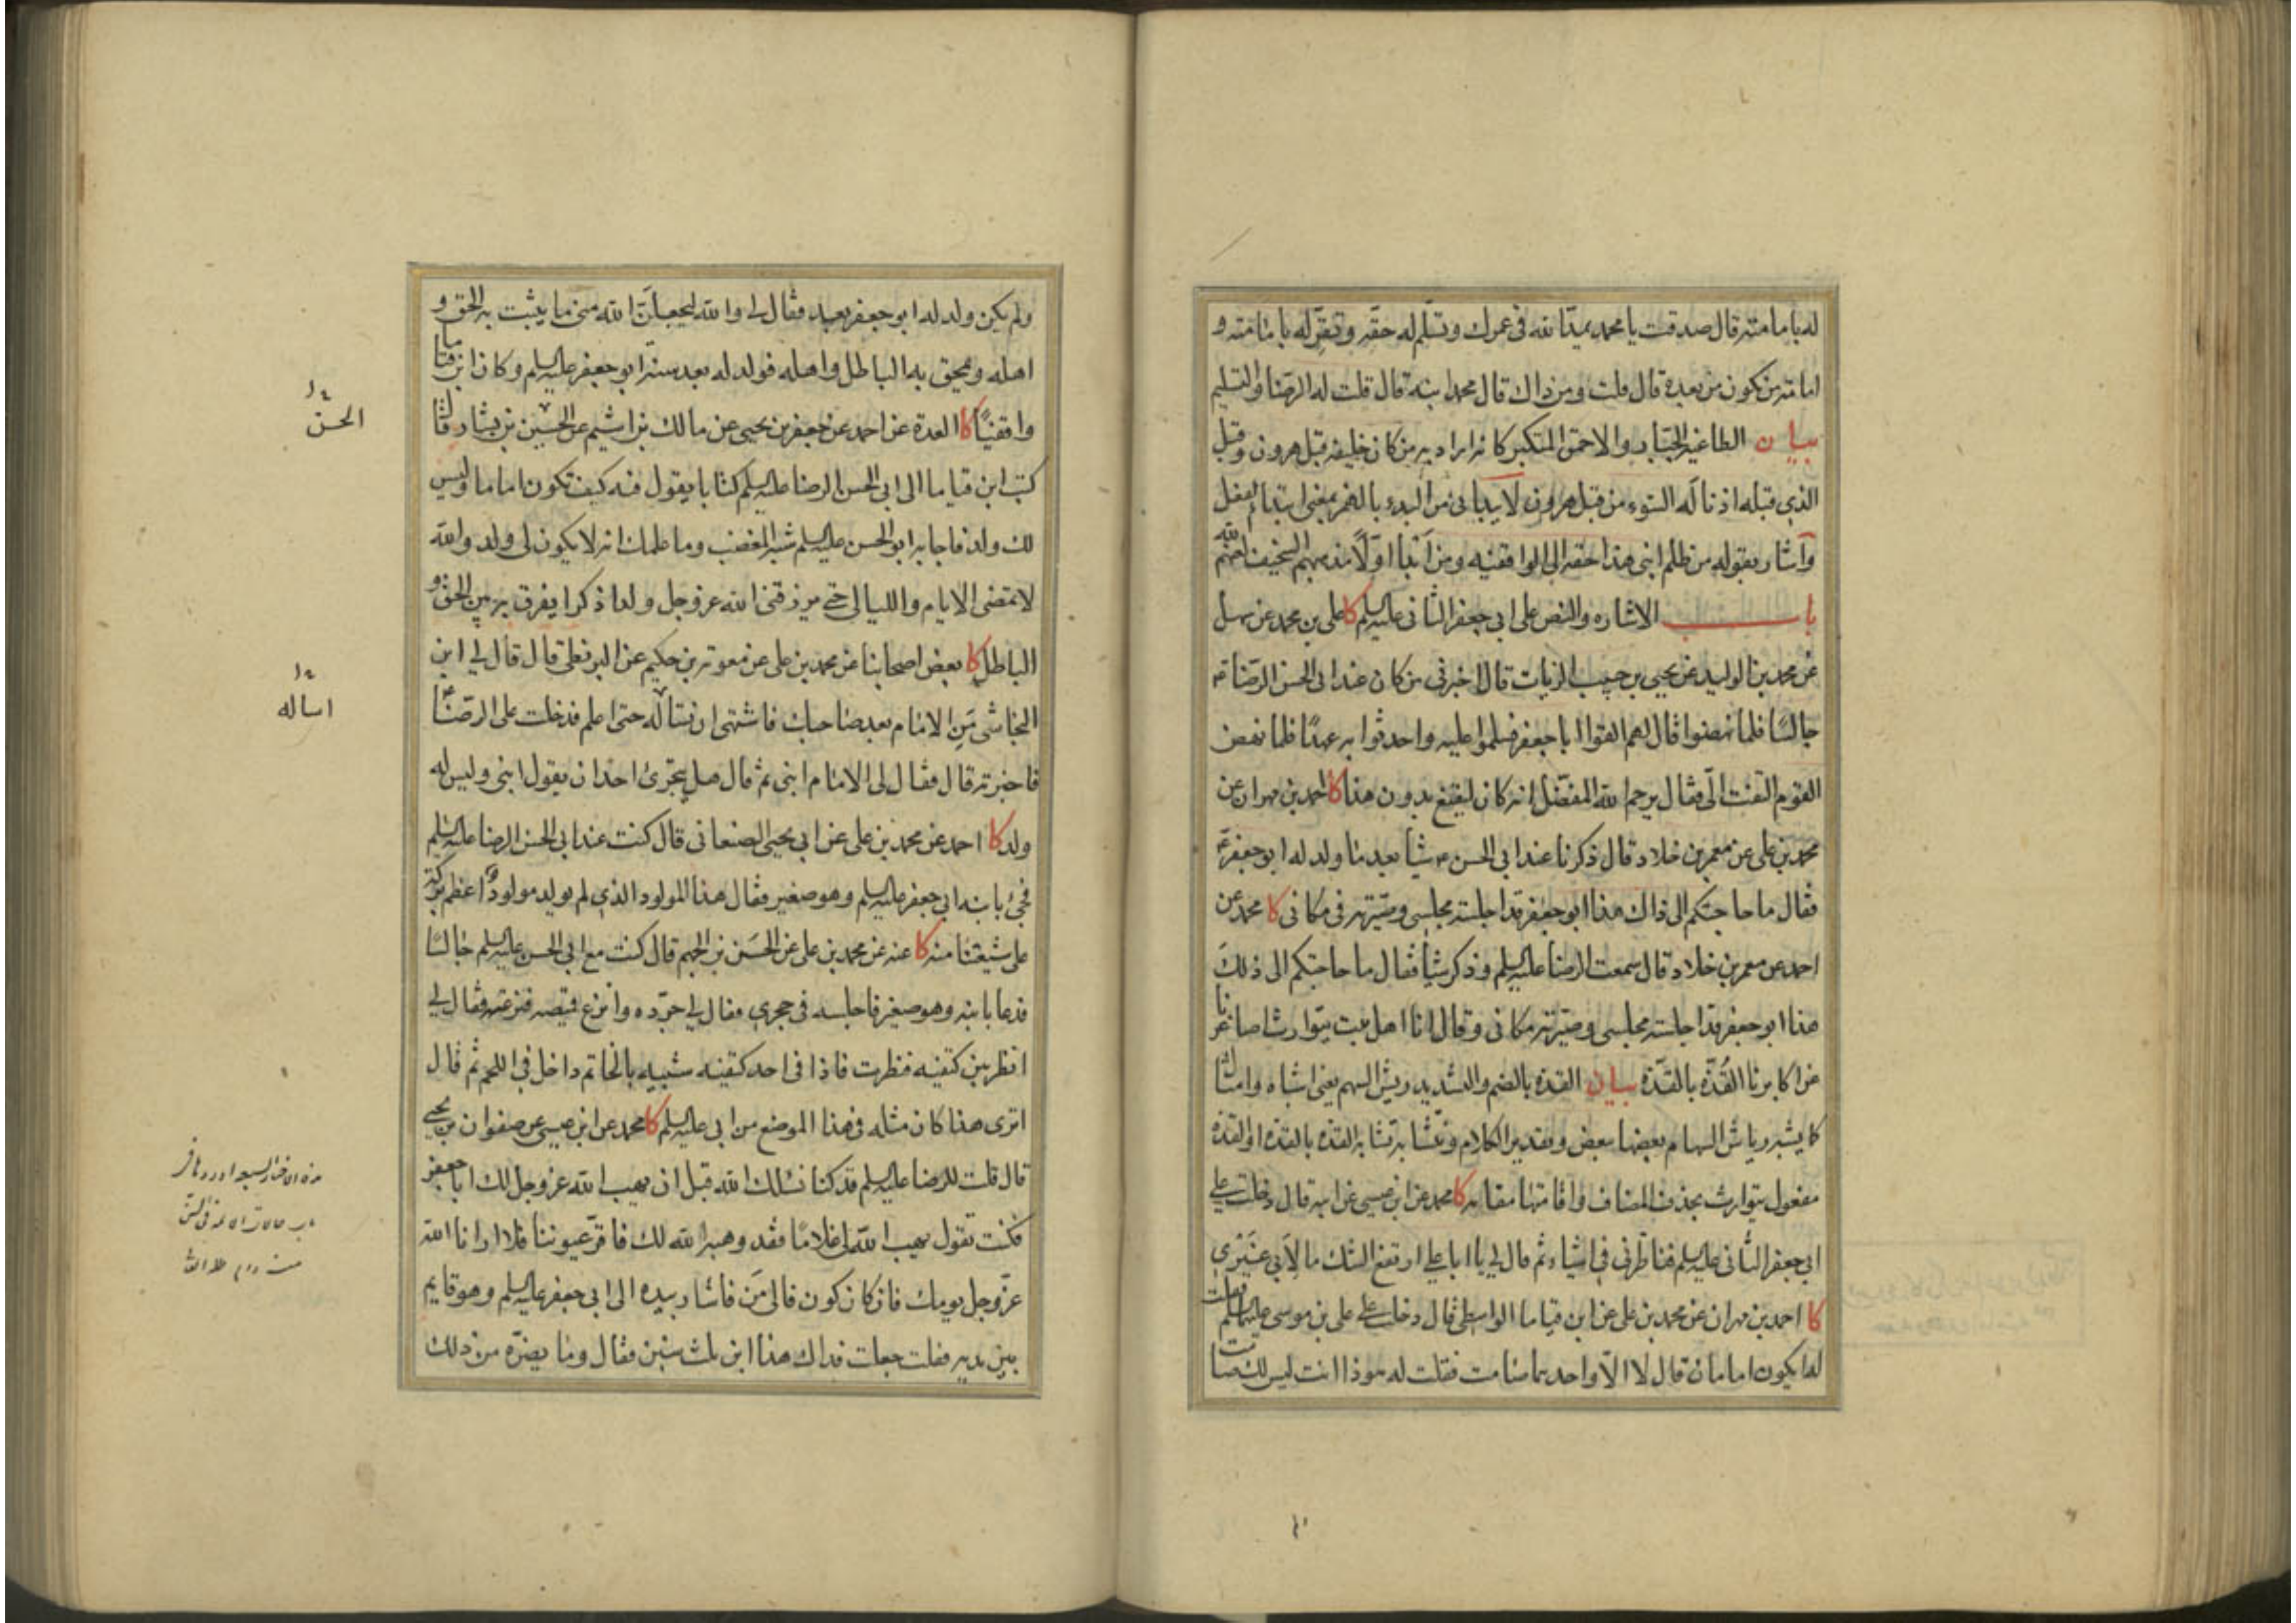 له بامامته قال صدقت يا محمد يمدّ الله في عمرك وتسلّم له حقّه وتقرّ له بامامته و
امامة من يكون من بعده قال قلت ومن ذاك قال محمد ابنه قال قلت له الرضا والتسليم
بيان الطاغية الجبّار والاحمق المتكبر كانه اراد به من كان خليفة قبل هرون وقيل
الذي قبله اذ ناله السوء من قبل هرون لا يبدأني من البدء بالهمز بمعنى ابتداء الفعل
وأشار بقوله من ظلم ابني هذا حقه الى الواقفية ومن ابتدا اولًا مذهبهم السخيف لعنهم الله
باب الاشاره والنص على ابي جعفر الثاني عليه السلم كا علي بن محمد عن سهل
عن محمد بن الوليد عن يحيى بن حبيب الزيات قال اخبرني من كان عند ابي الحسن الرضا ع
جالسًا فلما نهضوا قال لهم القوا ابا جعفر فسلموا عليه واحدثوا به عهدًا فلما نهض
القوم التفت الّي فقال يرحم الله المفضّل انه كان ليقنع بدون هذا كا احمد بن مهران عن
محمد بن علي عن معمر بن خلاد قال ذكرنا عند ابي الحسن ع شيأ بعد ما ولد له ابو جعفر ع
فقال ما حاجتكم الى ذاك هذا ابو جعفر قد اجلسته مجلسي وصيّرته في مكاني كا محمد عن
احمد عن معمر بن خلاد قال سمعت الرضا عليه السلم وذكر شيأ فقال ما حاجتكم الى ذلك
هذا ابو جعفر قد اجلسته مجلسي وصيّرته مكاني وقال انا اهل بيت يتوارث اصاغرنا
عن اكابرنا القُذّه بالقذّة بيان القذة بالضم والتشديد ريش السهم يعني اشباه وامثال
كما يشبه رياش السهام بعضها بعض وتقدير الكلام وتشابه تشابه القذه بالقذه او القذه
مفعول يتوارث بحذف المضاف واقامتها مقامه كا محمد عن ابن عيسى عن ابيه قال دخلت على
ابي جعفر الثاني عليه السلم فناظرني في اشياء ثم قال لي يا ابا علي ارتفع الشك ما لأبي غيري
كا احمد بن مهران عن محمد بن علي عن ابن قياما الواسطي قال دخلت على علي بن موسى عليهما السلم فقلت
له ايكون امامان قال لا الّا واحدهما صامت فقلت له هوذا انت ليس لك صامت
ولم يكن ولد له ابو جعفر بعد فقال لي والله ليجعلنّ الله مني ما يثبت به الحق و
اهله ويمحق به الباطل واهله فولد له بعد سنة ابو جعفر عليه السلم وكان ابن قياما
واقفيًّا كا العدة عن احمد عن جعفر بن يحيى عن مالك بن اشيم عن الحسين بن بشار قال
كتب ابن قياما الى ابي الحسن الرضا عليه السلم كتابا يقول فيه كيف تكون اماما وليس
لك ولد فاجابه ابو الحسن عليه السلم شبه المغضب وما علمك انه لا يكون لي ولد والله
لا تمضى الايام والليالي حتى يرزقني الله عز وجل ولدا ذكرا يفرق به بين الحق و
الباطل كا بعض اصحابنا عن محمد بن علي عن معوية بن حكيم عن البزنطي قال قال لي ابن
النجاشي مَنِ الامام بعد صاحبك فاشتهى ان تسأله حتى اعلم فدخلت على الرضا ع
فاخبرته قال فقال لي الامام ابني ثم قال هل يتجرى احد ان يقول ابني وليس له
ولد كا احمد عن محمد بن علي عن ابي يحيى الصنعاني قال كنت عند ابي الحسن الرضا عليه السلم
فجئ بابنه ابي جعفر عليه السلم وهو صغير فقال هذا المولود الذي لم يولد مولودٌ اعظم بركة
على شيعتنا منه كا عنه عن محمد بن علي عن الحسَن بن الجهم قال كنت مع ابي الحسن عليه السلم جالسًا
فدعا بابنه وهو صغير فاجلسه في حجري فقال لي جرّده وانزع قميصه فنزعته فقال لي
انظر بين كتفيه فنظرت فاذا في احد كتفيه شبيه بالخاتم داخل في اللحم ثم قال
اترى هذا كان مثله في هذا الموضع من ابي عليه السلم كا محمد عن ابن عيسى عن صفوان بن يحيى
قال قلت للرضا عليه السلم قد كنا نسئلك الله قبل ان يهب الله عز وجل لك ابا جعفر
فكنت تقول يهب الله لي غلامًا فقد وهبه الله لك فاقرّ عيوننا فلا ارانا الله
عزّ وجل يومك فان كان كون فالى مَن فاشار بيده الى ابي جعفر عليه السلم وهو قايم
بين يديه فقلت جعلت فداك هذا ابن ثلث سنين فقال وما يضرّه من ذلك
الحسن
اساله